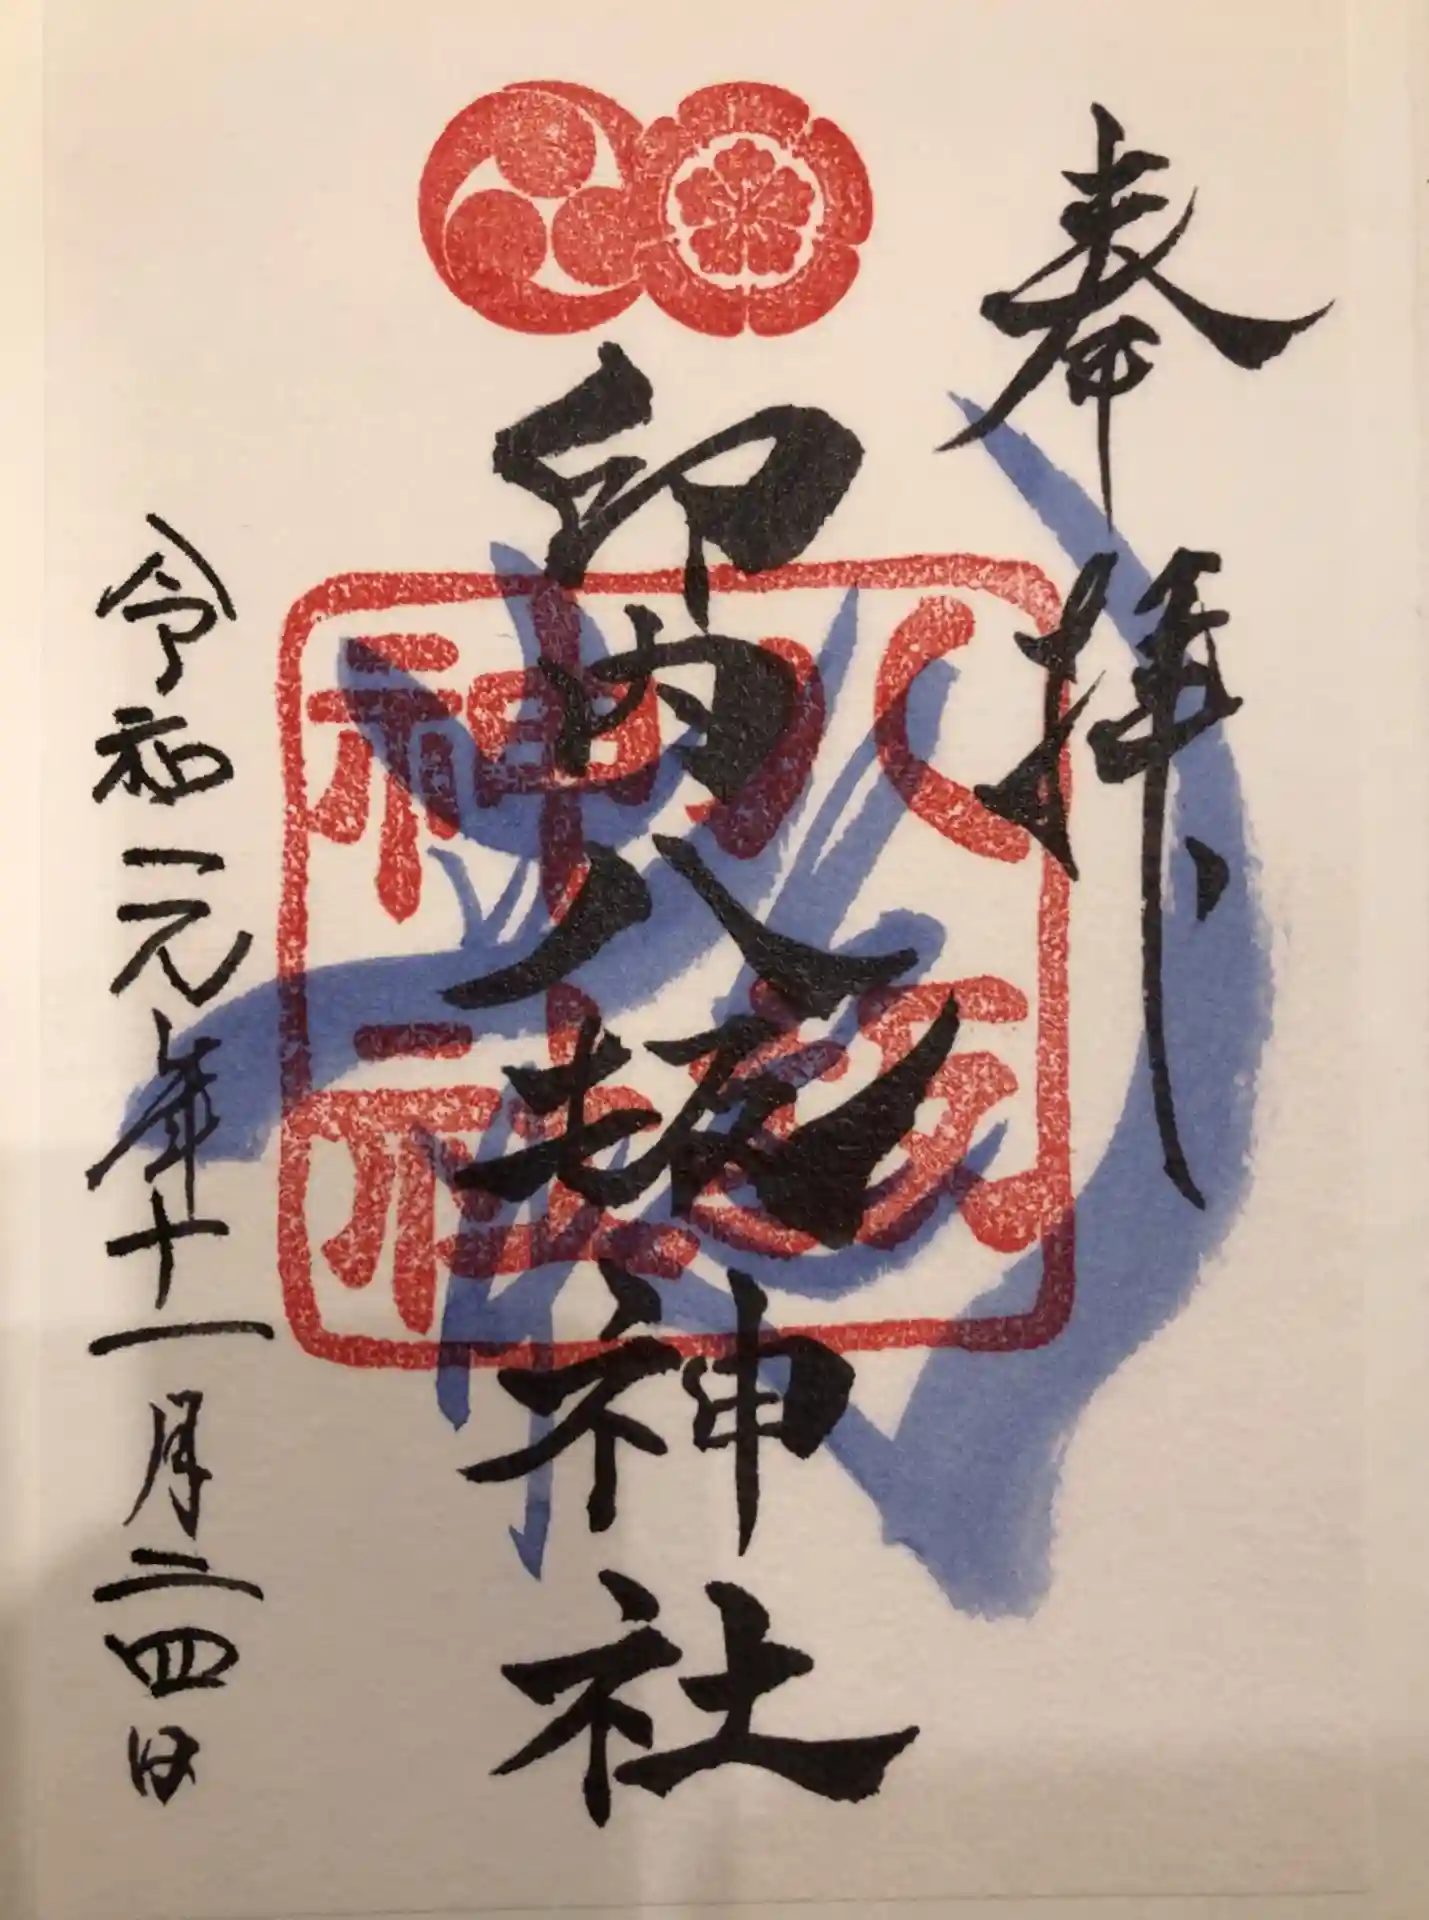 奉拝
印内八坂神社
八坂神社
令和元年十一月二四日